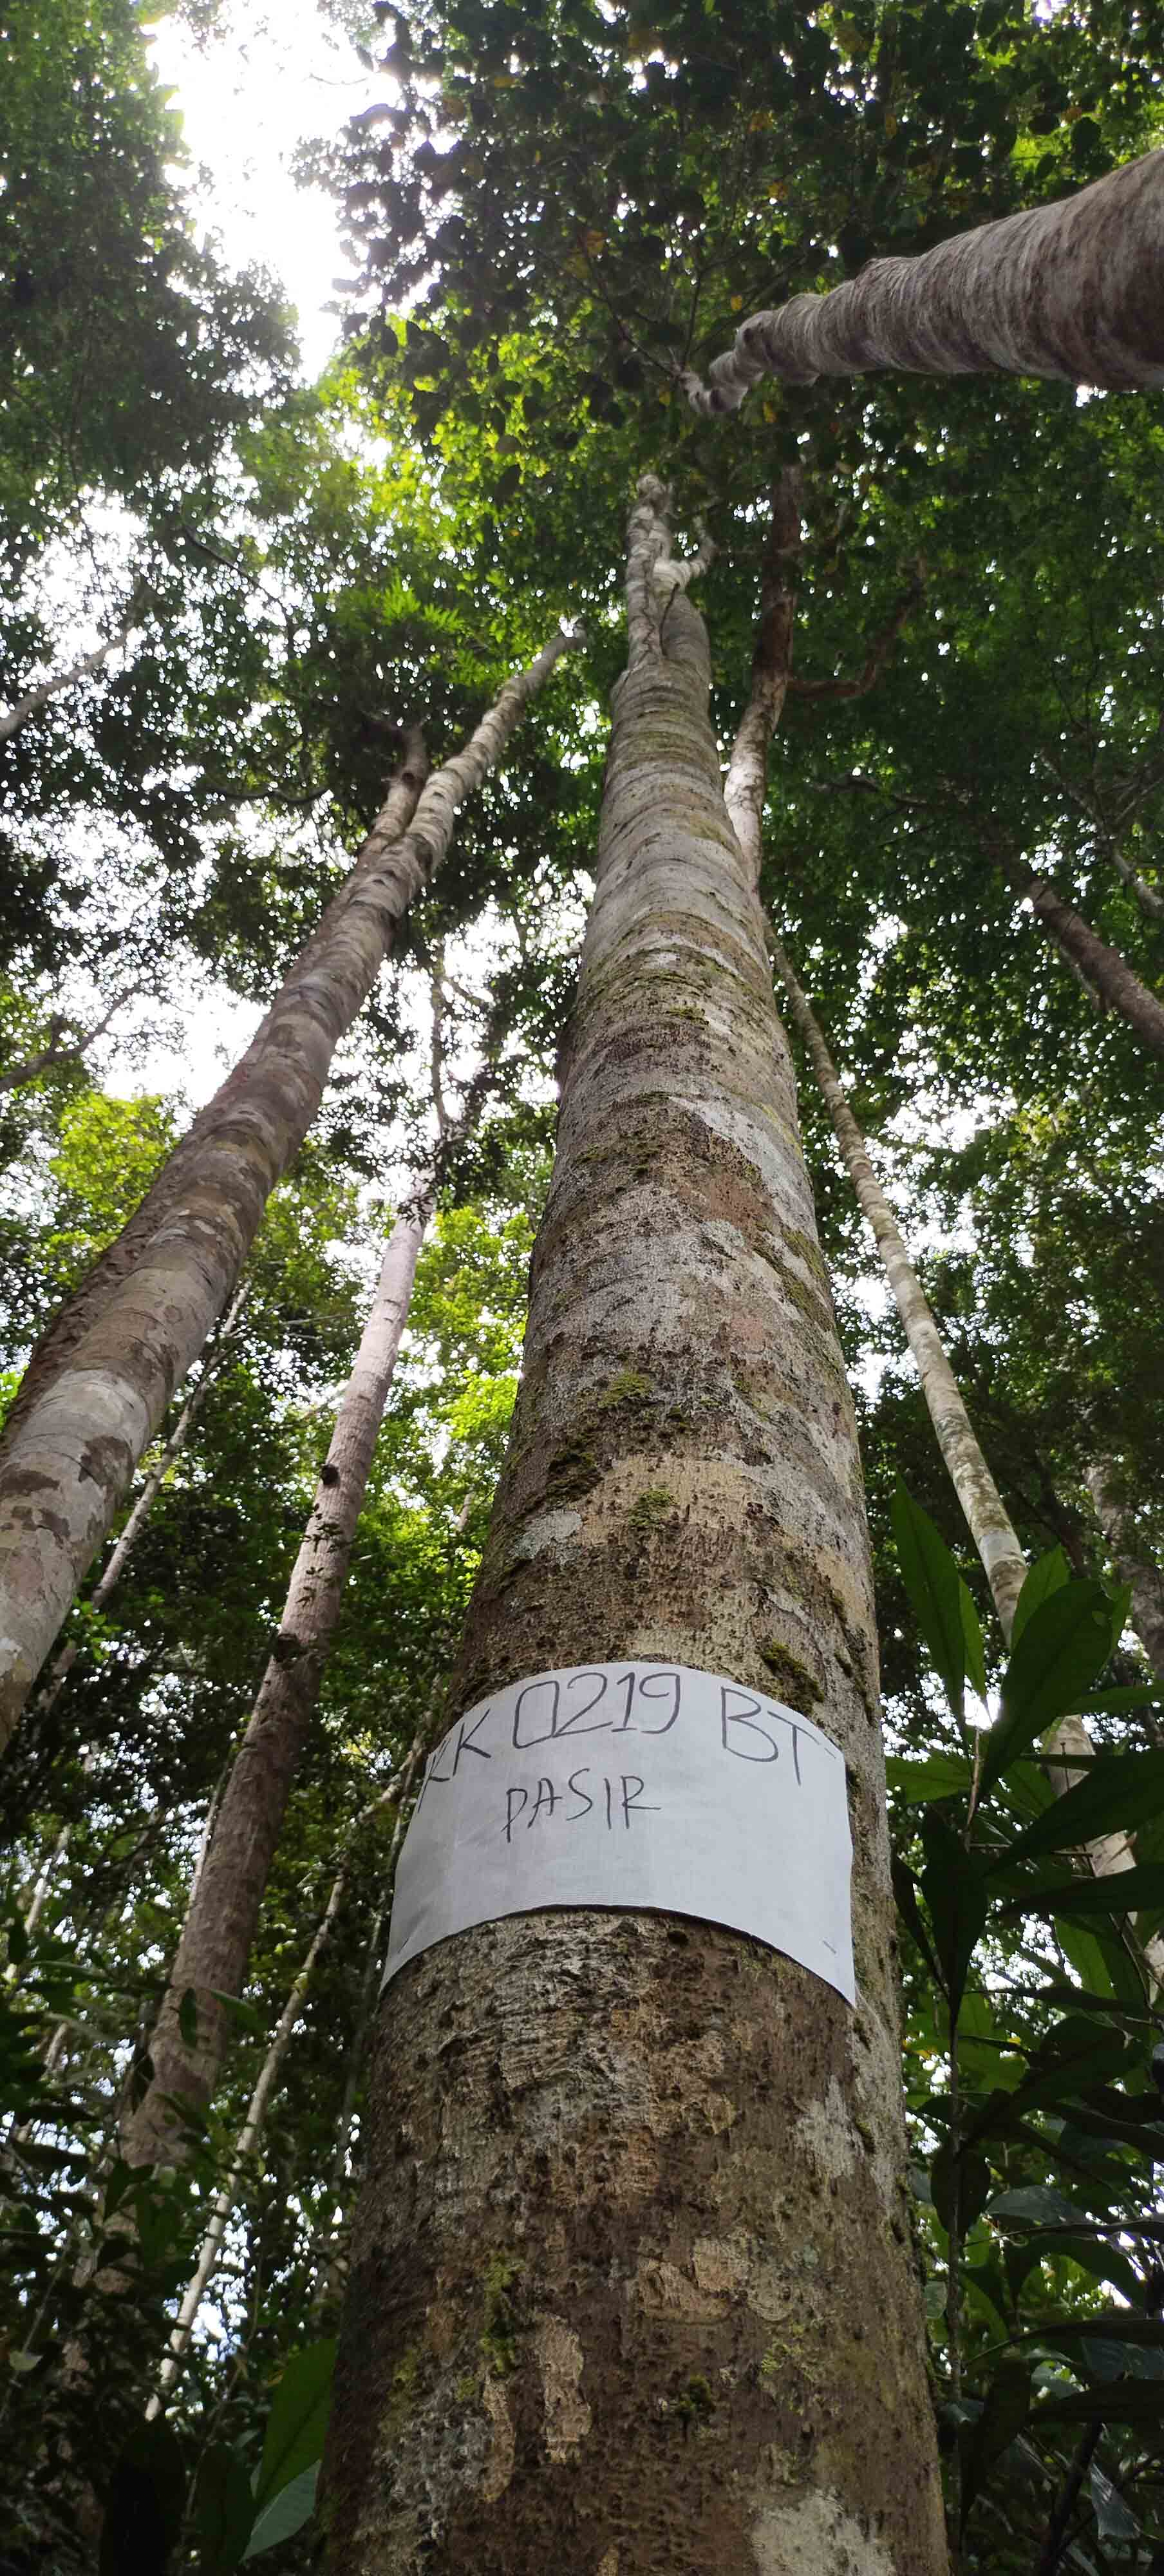 KK 0219 BT
PASIR